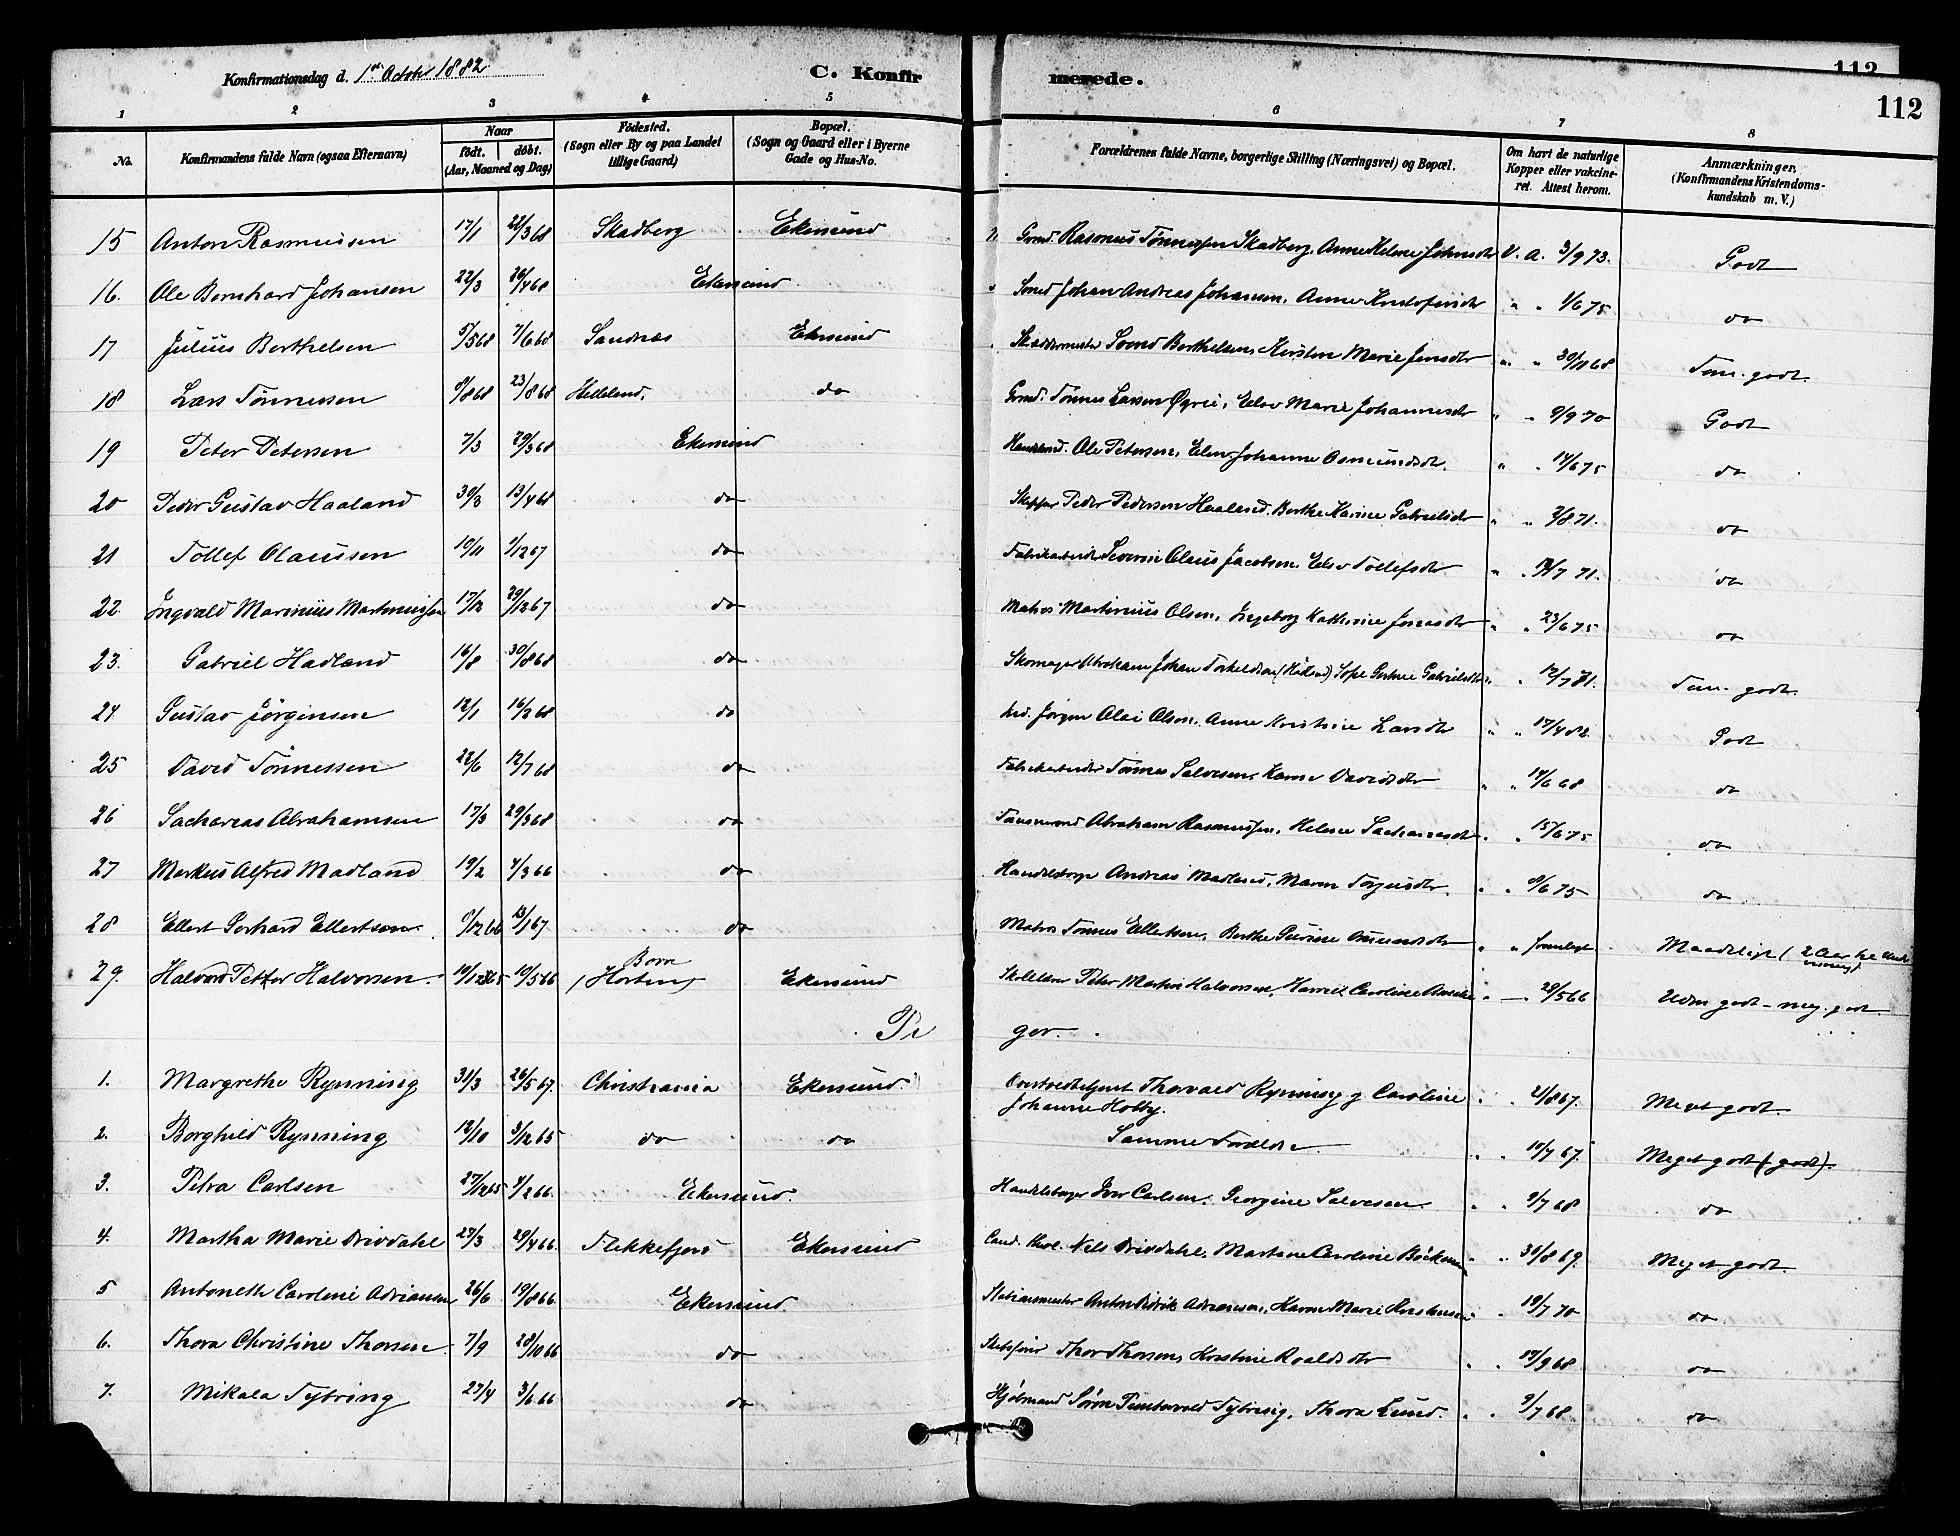 Konfirmationsdag d. 1ste October 1882 C. Konfirmerede. 112
112
1 2 3 4 5 6 7 8
No. Konfirmandens fulde Navn (ogsaa Efternavn) Naar födt. döbt. (Aar, Maaned og Dag) Födested. (Sogn eller By og paa Landet tillige Gaard) Bopæl. (Sogn og Gaard eller i Byerne Gade og Hus-No. Forældrenes fulde Navne, borgerlige Stilling (Næringsvei) og Bopæl. Om havt de naturlige Kopper eller vakcineret. Attest herom. Anmærkninger. (Konfirmandens Kristendomskundskab m. V.)
15 Anton Rasmussen 17/1 22/3 68 Skadberg Ekersund Grmd. Rasmus Tønnessen Skadberg, Anne Helene Johnsdtr V. A. 3/9 73. Godt
16. Ole Bernhard Johansen 22/3 26/4 68 Ekersund Johan Andreas Johansen, Anne " " 1/6 75 do
17 Julius Berthelsen 5/5 68 7/6 68 Sandnæs Ekersund Svend Berthelsen, Kirsten Marie Jensdtr " " 30/11 68 Tem. godt.
18 Lars Tönnessen 9/8 68 23/8 68 Helleland. do Grmd. Tönnes Larsen Øgrei, Elsv Marie Johannesdtr " " 9/9 70 Godt
19 Peter Petersen 7/3 29/3 68 Ekersund Ole Petersen, Elen Johanne Osmundsdtr. " " 14/6 75 do
20 Peder Gustav Haaland 30/3 13/4 68 do Skipper Peder Pedersen Haaland, Berthe Karine Gabrielsdtr " " 2/8 71. do
21 Tollef Olaussen 10/11 1/12 67 do Fabrikarbeider Severin Olaus Jacobsen, Elsv Tollefsdtr " " 14/7 71. do
22 Ingvald Marinius Martiniussen 17/12 29/12 67 do Matros Martinius Olsen, Ingeborg Kathrine Jonasdtr " " 23/6 75 do
23. Gabriel Hadland 16/8 30/8 68 do Skomager Abraham Johan Torkeldsen (Hadland) Gabrielsdtr " " 12/7 81. Tem. godt.
24 Gustav Jörgensen 12/1 16/2 68 do Jörgen Olai Olsen, Anne Kristine Larsdtr " " 17/4 82. Godt
25 David Tönnessen 22/6 12/7 68 do Fabrikarbeider Tönnes Salvesen, Karen Davidsdtr " " 17/6 68 do
26 Sacharias Abrahamsen 17/3 29/3 68 do Abraham Rasmussen, Helene Sachariasdtr " " 15/6 75 do
27 Markus Alfred Madland 19/2 4/3 66 do Andreas Madland, Maren Torgersdtr. " " 9/6 75 do
28 Ellert Gerhard Ellertsen 9/12 66 13/1 67 do Matros Tönnes Ellertsen, Berthe Gurine " " fremlagt Maadeligt (2 Aar
29. Halvard Petter Halvorsen. 10/12 65 10/5 66 (Horten) Borre Ekersund Peter Martin Halvorsen, Caroline " — 28/5 66 Udm. godt - meg. godt.
Piger.
1. Margrethe Rynning 31/3 26/5 67. Christiania Ekersund Thorvald Rynning og Caroline Johanne Holby. " " 21/8 67. Meget godt
2. Borghild Rynning 12/10 3/12 65 do do Samme Foreldre " " 10/7 67. Meget godt (godt).
3. Petra Carlsen 27/12 65 4/2 66. Ekersund. Handelsborger Iver Carlsen, Georgine Salvesen " " 9/7 68 do
4. Martha Marie Drivdahl 27/3 29/4 66. Flekkefjord Ekersund Cand. theol. Nils Drivdahl, Martine Caroline " " 30/8 69. Meget godt.
5 Antonette Caroline Adriansen 26/6 19/8 66. Ekersund. Anton Didrik Adriansen, Karen Marie " " 19/7 70 do
6. Thora Christine Thorsen 7/9 28/10 66 do Skibsfører Thor Thorsen, Kristine Roaldsdtr " " 17/9 68 do
7. Mikala Tybring 27/4 3/6 66 do Kjöbmand Søren Tybring, Thora Lund. " " 9/7 68 do